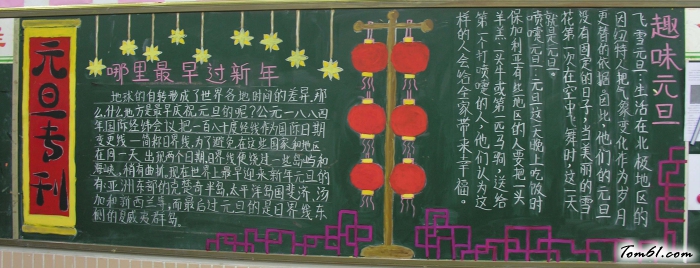 元旦专刊
哪里最早过新年
地球的自转形成了世界各地时间的差异,那
么,什么地方是最早庆祝元旦的呢?公元一八八四
年国际经纬会议把一百八十度经线作为国际日期
变更线——简称日界线。为了避免在这些国家和地区
在同一天出现两个日期,日界线便绕过一些岛屿和
海峡,稍有曲折。现在世界上最早迎来新年元旦的
有:亚洲东部的克赞奇半岛、太平洋岛国斐济、汤
加和新西兰等,而最后过元旦的是日界线东
侧的夏威夷群岛。
趣味元旦
飞雪元旦:生活在北极地区的
因纽特人把气象变化作为岁月
更替的依据。因此,他们的元旦
没有固定的日子,当美丽的雪
花第一次在空中飞舞时,这一天
就是元旦。
喷嚏元旦:元旦这一天晚上吃饭时
保加利亚有些地区的人要把一头
羊羔、一头牛或第一匹马驹,送给
第一个打喷嚏的人,他们认为这
样的人会给全家带来幸福。
Tom61.com